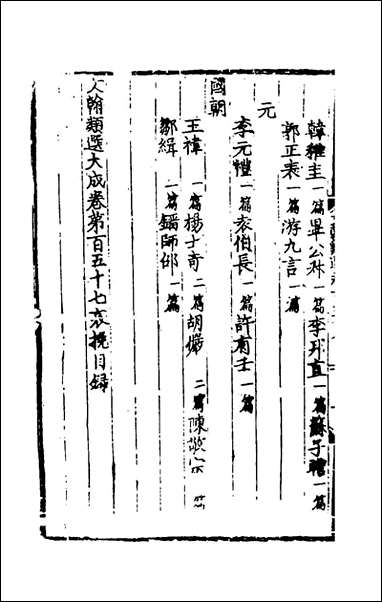 韓稚圭一篇畢公叔一篇李邦直一篇蘇子瞻一篇
郭正表一篇游九言一篇
元
李元愷一篇袁伯長一篇許有壬一篇
國朝
王禕一篇楊士奇二篇胡儼二篇陳敬宗一篇
鄒緝一篇錢師邵一篇
文翰類選大成卷第一百五十七哀挽目録